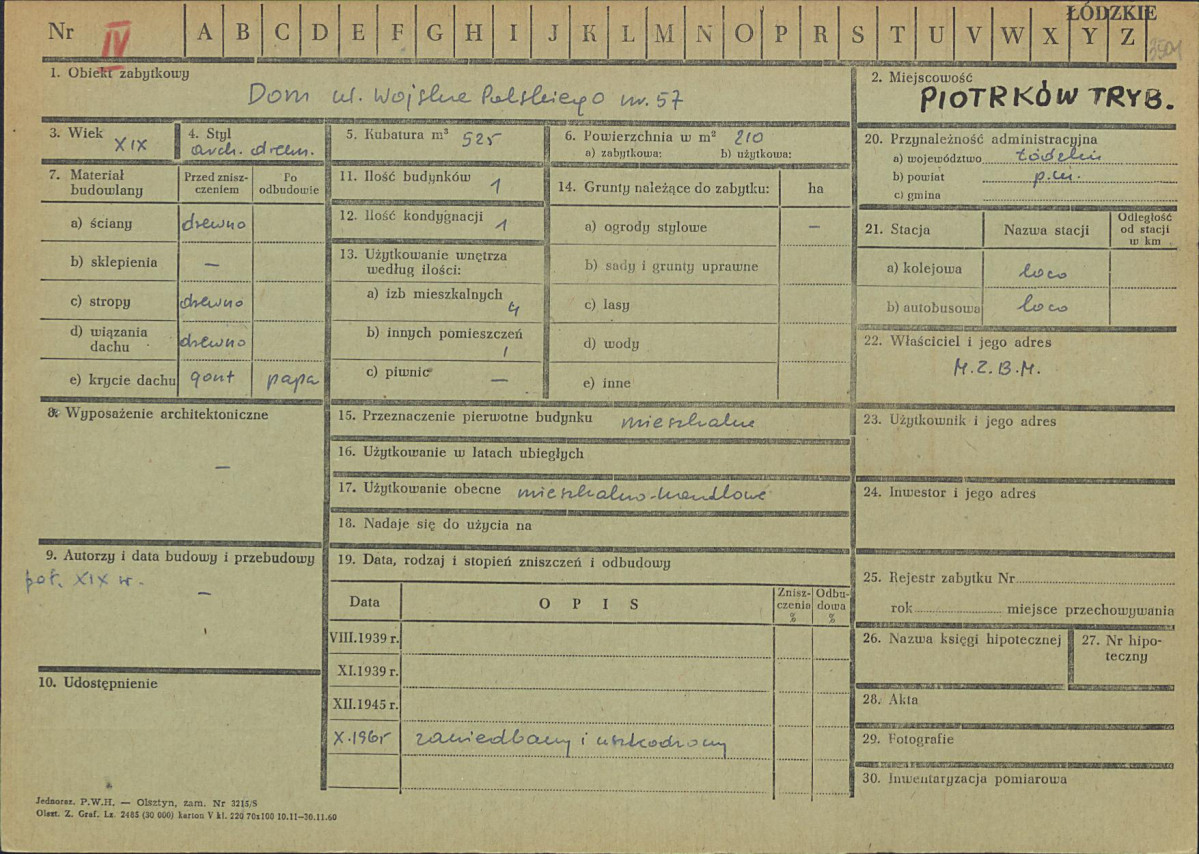 Nr IV A B C D E F G H I J K L M N O P R S T U V W X Y Z
ŁÓDZKIE
3501
1. Obiekt zabytkowy
Dom ul. Wojska Polskiego nr. 57
2. Miejscowość
PIOTRKÓW TRYB.
3. Wiek XIX
4. Styl
arch. drewn.
5. Kubatura m³ 525
6. Powierzchnia w m² 210
a) zabytkowa: b) użytkowa:
7. Materiał budowlany
Przed zniszczeniem
Po odbudowie
a) ściany drewno
b) sklepienia —
c) stropy drewno
d) wiązania dachu drewno
e) krycie dachu gont papa
8. Wyposażenie architektoniczne
—
9. Autorzy i data budowy i przebudowy
poł. XIX w.
—
10. Udostępnienie
11. Ilość budynków 1
12. Ilość kondygnacji 1
13. Użytkowanie wnętrza
według ilości:
a) izb mieszkalnych 4
b) innych pomieszczeń 1
c) piwnic —
14. Grunty należące do zabytku: ha
a) ogrody stylowe —
b) sady i grunty uprawne
c) lasy
d) wody
e) inne
15. Przeznaczenie pierwotne budynku mieszkalne
16. Użytkowanie w latach ubiegłych
17. Użytkowanie obecne mieszkalno-handlowe
18. Nadaje się do użycia na
19. Data, rodzaj i stopień zniszczeń i odbudowy
Data OPIS Zniszczenia % Odbudowa %
VIII.1939 r.
XI.1939 r.
XII.1945 r.
X.1965 zaniedbany i uszkodzony
20. Przynależność administracyjna
a) województwo łódzkie
b) powiat p.m.
c) gmina
21. Stacja Nazwa stacji Odległość od stacji w km
a) kolejowa loco
b) autobusowa loco
22. Właściciel i jego adres
M.Z.B.M.
23. Użytkownik i jego adres
24. Inwestor i jego adres
25. Rejestr zabytku Nr
rok miejsce przechowywania
26. Nazwa księgi hipotecznej
27. Nr hipoteczny
28. Akta
29. Fotografie
30. Inwentaryzacja pomiarowa
Jednoraz. P.W.H. — Olsztyn, zam. Nr 3215/S
Olszt. Z. Graf. Lz. 2485 (30 000) karton V kl. 220 70x100 10.11—30.11.60